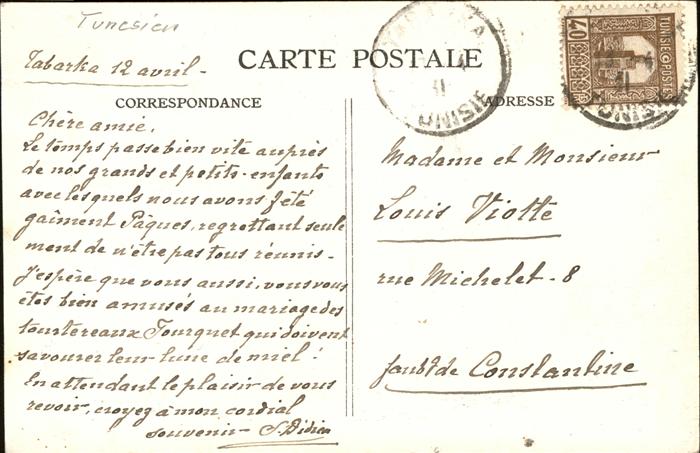 Tunesien
Tabarka 12 avril -
CARTE POSTALE
CORRESPONDANCE
Chère amie,
Le temps passe bien vite auprès
de nos grands et petits-enfants
avec lesquels nous avons fêté
gaiment Pâques, regrettant seule
ment de n'être pas tous réunis -
J'espère que vous aussi, vous vous
êtes bien amusés au mariage des
tourtereaux Fourquet qui doivent
savourer leur lune de miel !
En attendant le plaisir de vous
revoir, croyez à mon cordial
souvenir - S. Didier
ADRESSE
Madame et Monsieur
Louis Viotte
rue Michelet - 8
faubg de Constantine
TUNISIE POSTES
40
TABARKA
TUNISIE